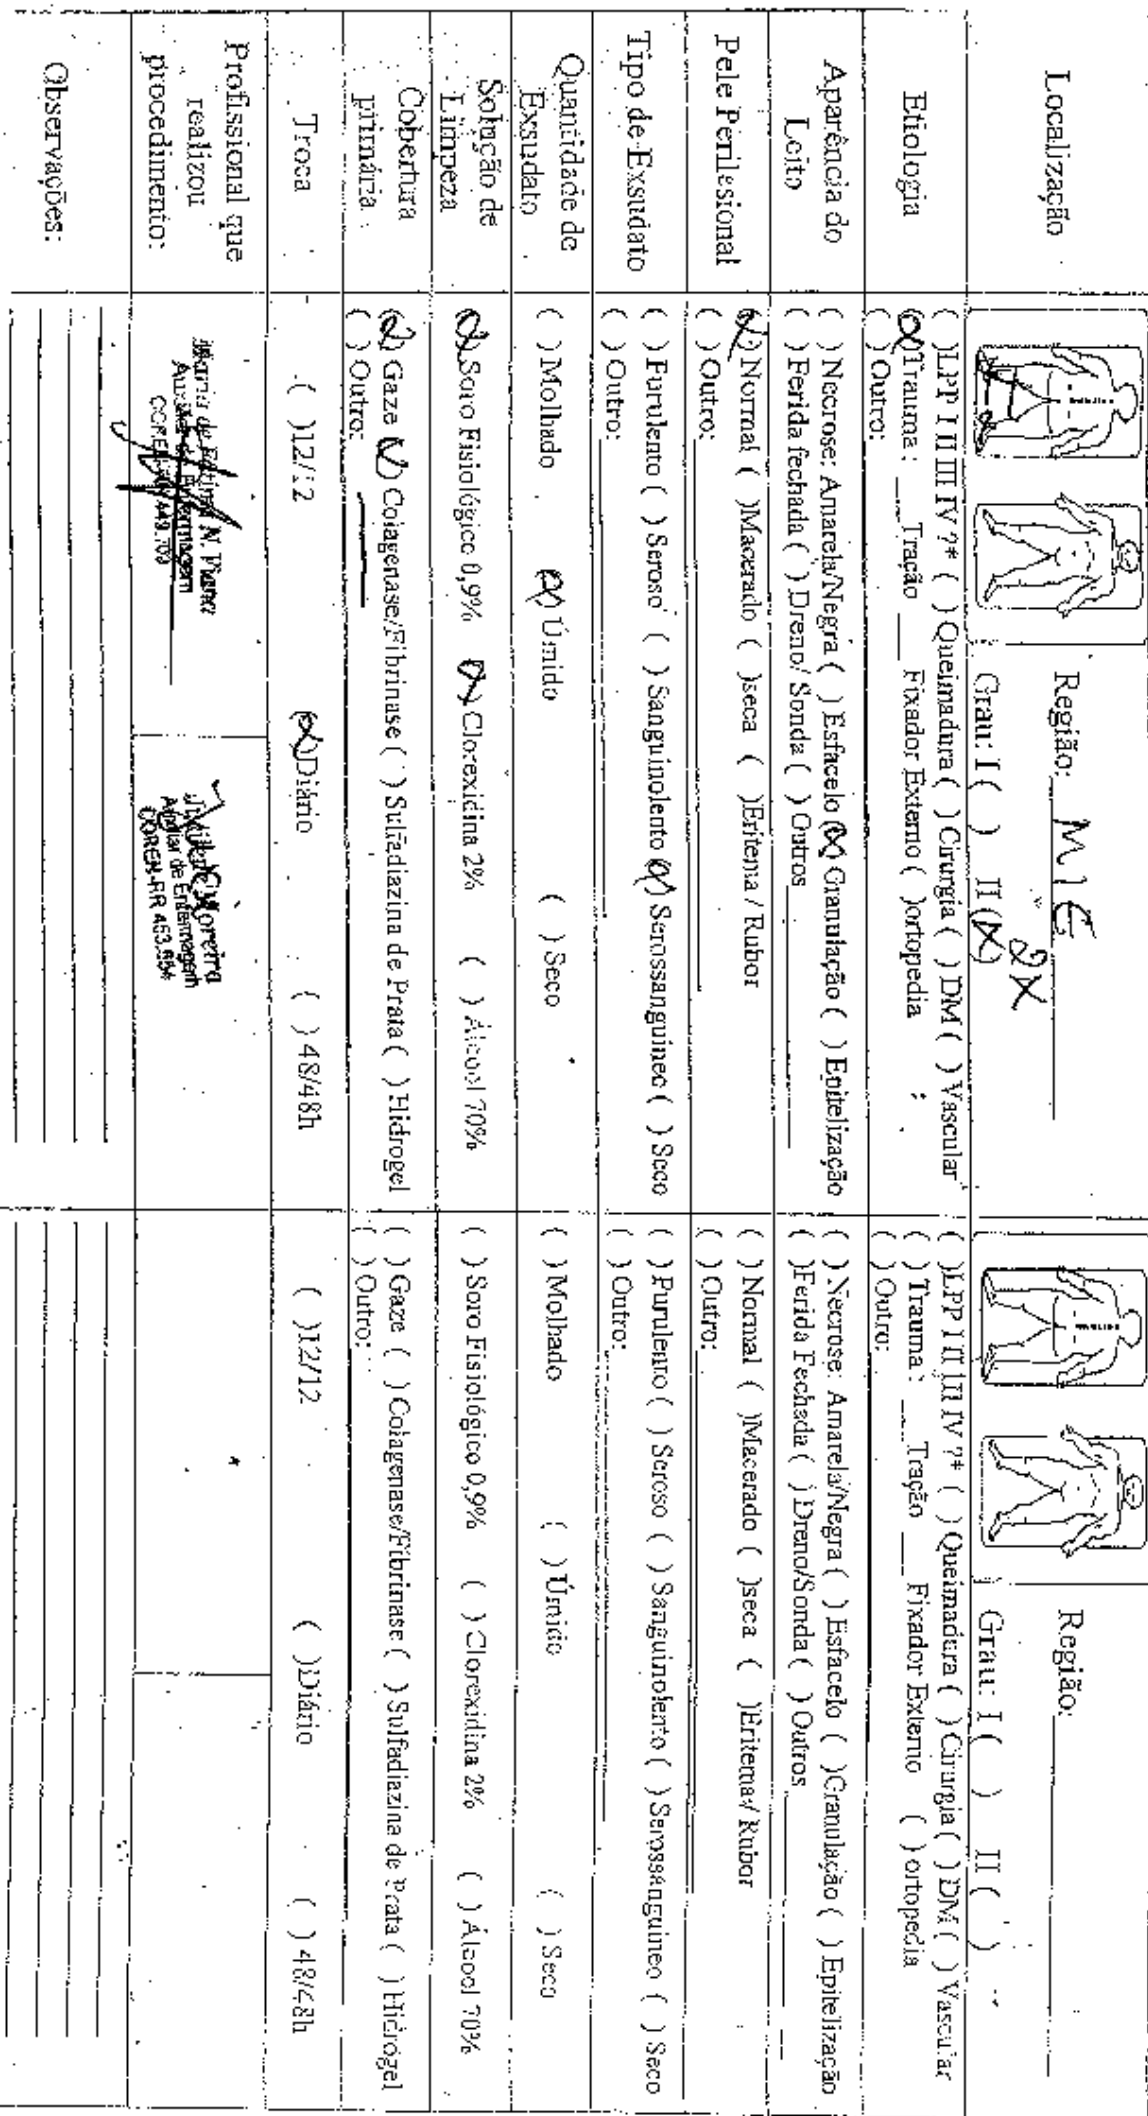 Localização
Região: MIE
2X
Grau: I ( ) II (X)
Região:
Grau: I ( ) II ( )
Etiologia
( )LPP I II III IV ?* ( ) Queimadura ( ) Cirurgia ( ) DM ( ) Vascular
(X)Trauma : ___Tração ___ Fixador Externo ( )ortopedia ;
( ) Outro:
( )LPP I II III IV ?* ( ) Queimadura ( ) Cirurgia ( ) DM ( ) Vascular
( ) Trauma : ___Tração ___ Fixador Externo ( ) ortopedia
( ) Outro:
Aparência do
Leito
( ) Necrose: Amarela/Negra ( ) Esfacelo (X) Granulação ( ) Epitelização
( ) Ferida fechada ( ) Dreno/ Sonda ( ) Outros
( ) Necrose: Amarela/Negra ( ) Esfacelo ( )Granulação ( ) Epitelização
( )Ferida Fechada ( ) Dreno/Sonda ( ) Outros
Pele Perilesional
(X) Normal ( )Macerado ( )seca ( )Eritema / Rubor
( ) Outro:
( ) Normal ( )Macerado ( )seca ( )Eritema/ Rubor
( ) Outro:
Tipo de Exsudato
( ) Purulento ( ) Seroso ( ) Sanguinolento (X) Serossanguineo ( ) Seco
( ) Outro:
( ) Purulento ( ) Seroso ( ) Sanguinolento ( ) Serossanguineo ( ) Seco
( ) Outro:
Quantidade de
Exsudato
( ) Molhado (X) Úmido ( ) Seco
( ) Molhado ( ) Úmido ( ) Seco
Solução de
Limpeza
(X) Soro Fisiológico 0,9% (X) Clorexidina 2% ( ) Álcool 70%
( ) Soro Fisiológico 0,9% ( ) Clorexidina 2% ( ) Álcool 70%
Cobertura
primária
(X) Gaze (X) Colagenase/Fibrinase ( ) Sulfadiazina de Prata ( ) Hidrogel
( ) Outro:
( ) Gaze ( ) Colagenase/Fibrinase ( ) Sulfadiazina de Prata ( ) Hidrogel
( ) Outro:
Troca
( )12/12 (X)Diário ( ) 48/48h
( )12/12 ( )Diário ( ) 48/48h
Profissional que
realizou
procedimento:
Maria de Fátima N. Viana
Auxiliar de Enfermagem
Moreira
Auxiliar de Enfermagem
COREN-RR 453.654
Observações: